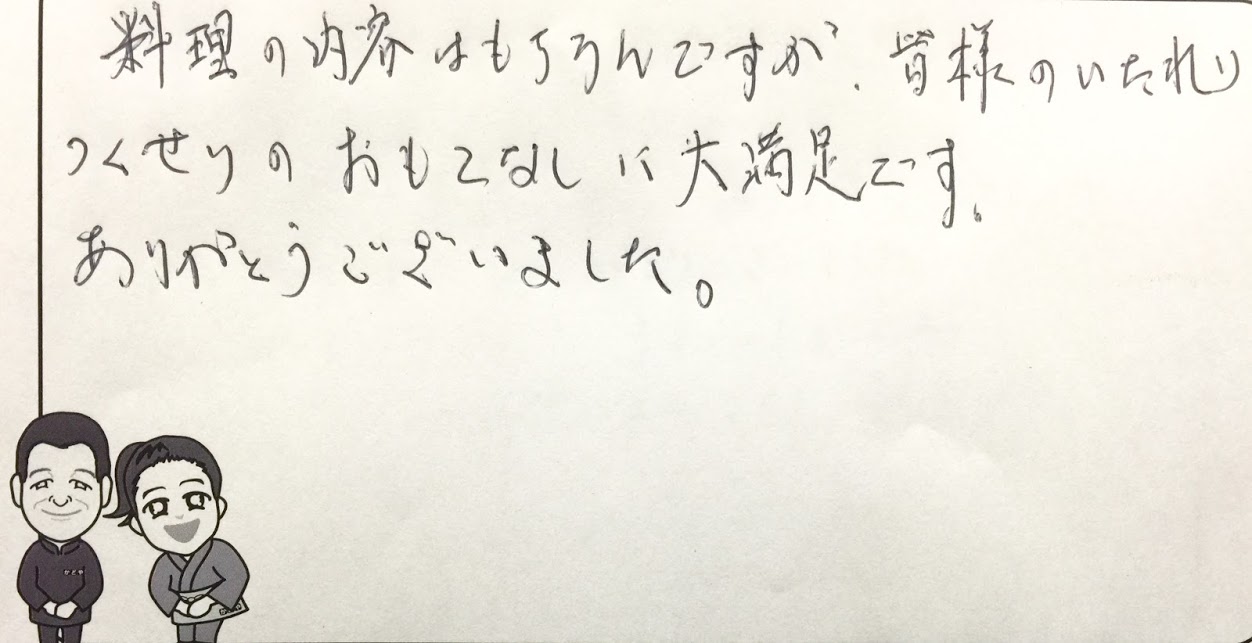 料理の内容はもちろんですが、皆様のいたれり
つくせりのおもてなしに大満足です。
ありがとうございました。